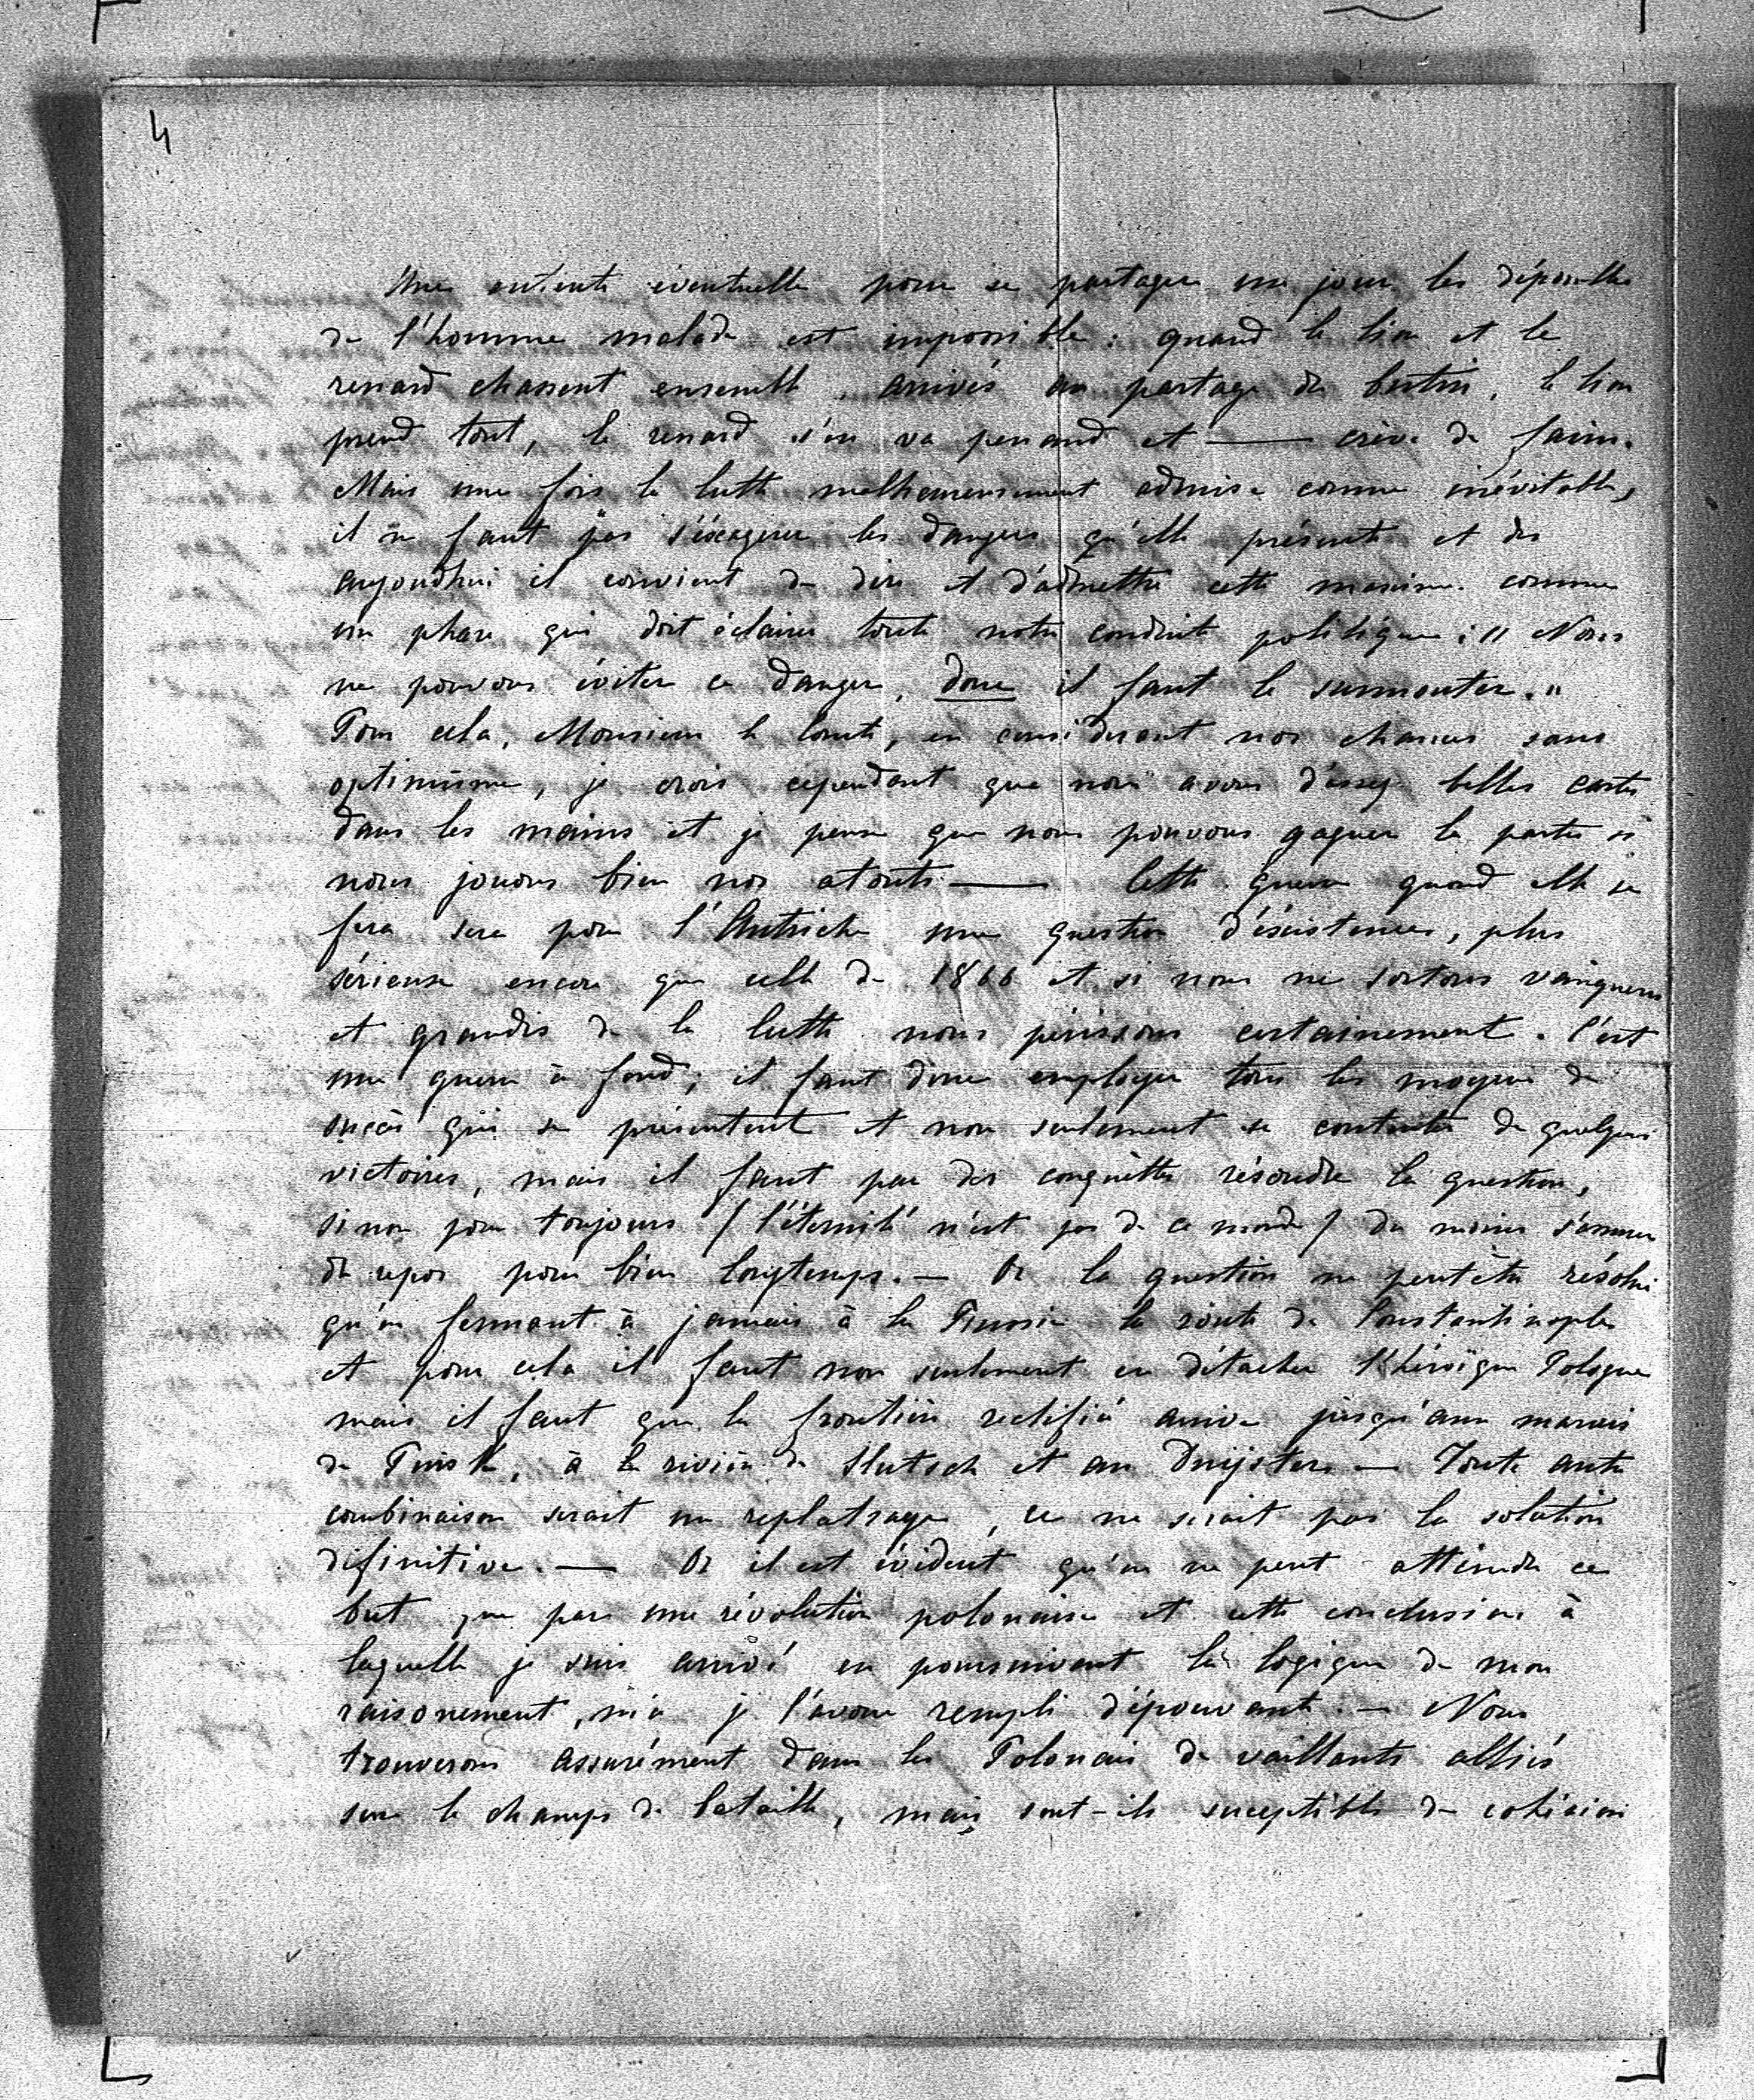 4
Une entente éventuelle pour se partager un jour les dépouilles
de l'homme malade est impossible : quand le lion et le
renard chassent ensemble, arrivés au partage du butin, le lion
prend tout, le renard s'en va penaud et — crève de faim.
Mais une fois la lutte malheureusement admise comme inévitable,
il ne faut pas s'éxagerer les dangers qu'elle présente et dès
aujourdhui il convient de dire et d'admettre cette maxime comme
un phare qui doit éclairer toute notre conduite politique : " Nous
ne pouvons éviter ce danger, donc il faut le surmonter. "
Pour cela, Monsieur le Comte, en considerant nos chances sans
optimisme, je crois cependant que nous avons d'assez belles cartes
dans les mains et je pense que nous pouvons gagner la partie si
nous jouons bien nos atouts — Cette guerre quand elle se
fera sera pour l'Autriche une question d'éxistence, plus
sérieuse encore que celle de 1866 et si nous ne sortons vainqueurs
et grandis de la lutte nous périssons certainement. C'est
une guerre à fond; il faut donc employer tous les moyens de
succès qui se présentent et non seulement se contenter de quelques
victoires, mais il faut par des conquêttes résoudre la question,
sinon pour toujours / l'éternité n'est pas de ce monde / du moins s'assurer
du repos pour bien longtemps. — Or la question ne peut être résolue
qu'en fermant à jamais à la Russie la route de Constantinople
et pour cela il faut non seulement en détacher l'héroïque Pologne
mais il faut que la frontière rectifiée arrive jusqu'aux marais
de Pinsk, à la rivière de Slutsch et au Dnijster — Toute autre
combinaison serait un replatrage, ce ne serait pas la solution
difinitive. — Or il est évident qu'on ne peut atteindre ce
but que par une révolution polonaise et cette conclusion à
laquelle je suis arrivé en poursuivant la logique de mon
raisonement, m'a je l'avoue rempli d'épouvante. — Nous
trouverons assurément dans les Polonais de vaillants alliés
sur le champs de bataille, mais sont-ils suceptibles de cohésion